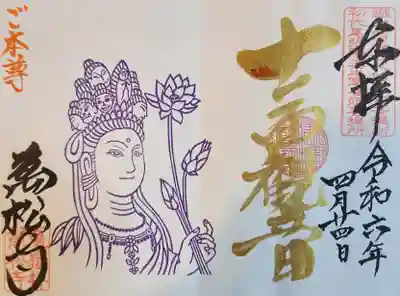 奉拝
令和六年
四月廿四日
十一面観世音
ご本尊
萬松寺